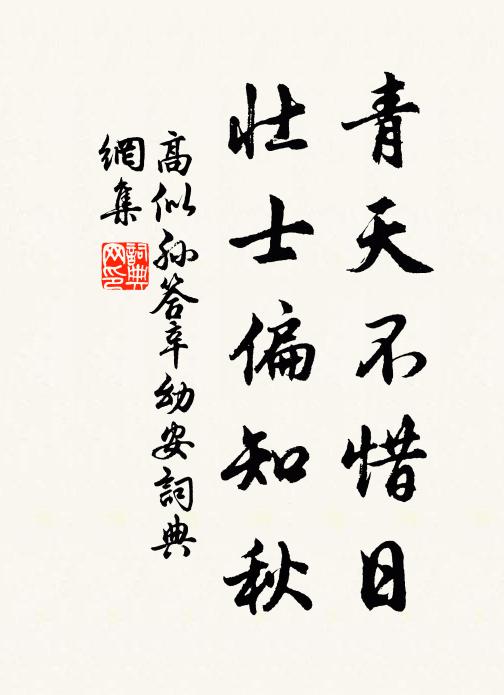 青天不惜日
壮士偏知秋
高似孙答辛幼安詞典
網集
詞典網印